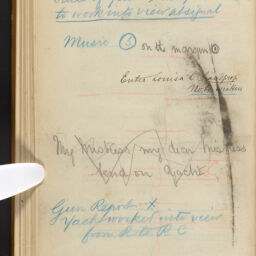 to work into view at signal
Music 5 on the margin
Enter Louisa &
My Mistress my dear mistress
lend on Yacht
Gun Report X
Yacht worked into view
from R to R C